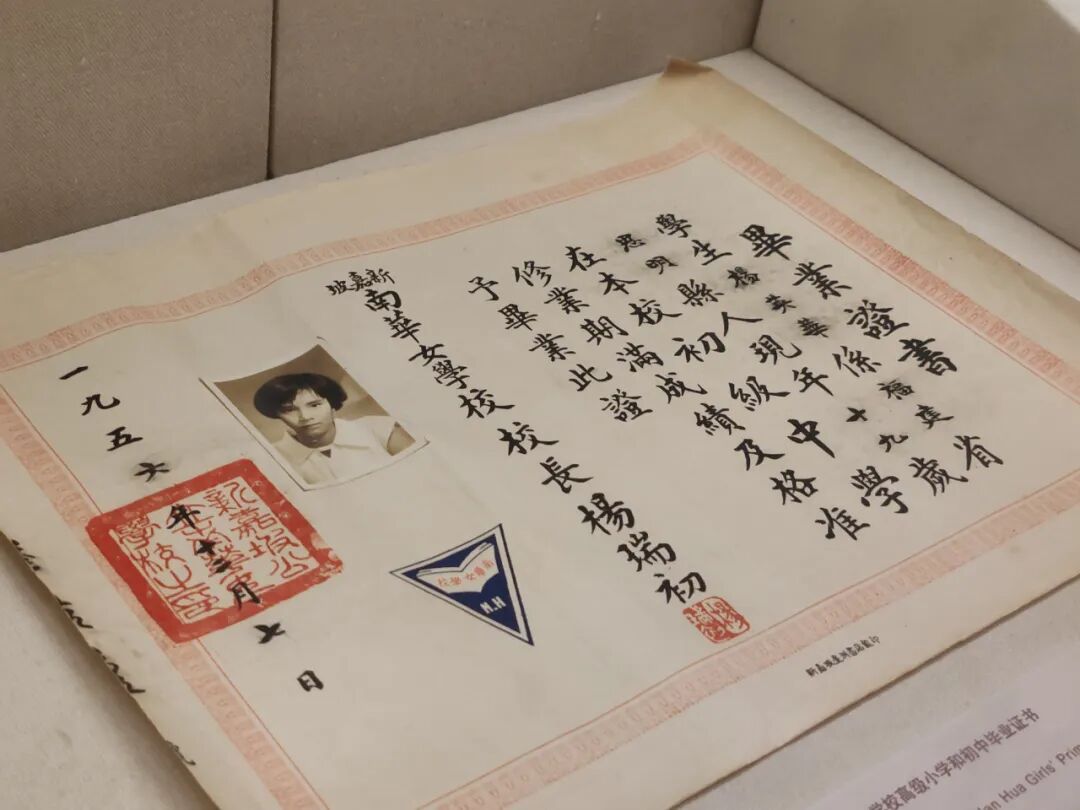 畢業證書
學生楊英華係福建省
思明縣人現年十九歲
在本校初級中學
修業期滿成績及格准
予畢業此證
新嘉坡南華女學校校長楊瑞初
一九五六年十二月七日
新嘉坡公
立南華女
學校之印
南華女學校
校高级小学和初中毕业证书
Hua Girls' Prim